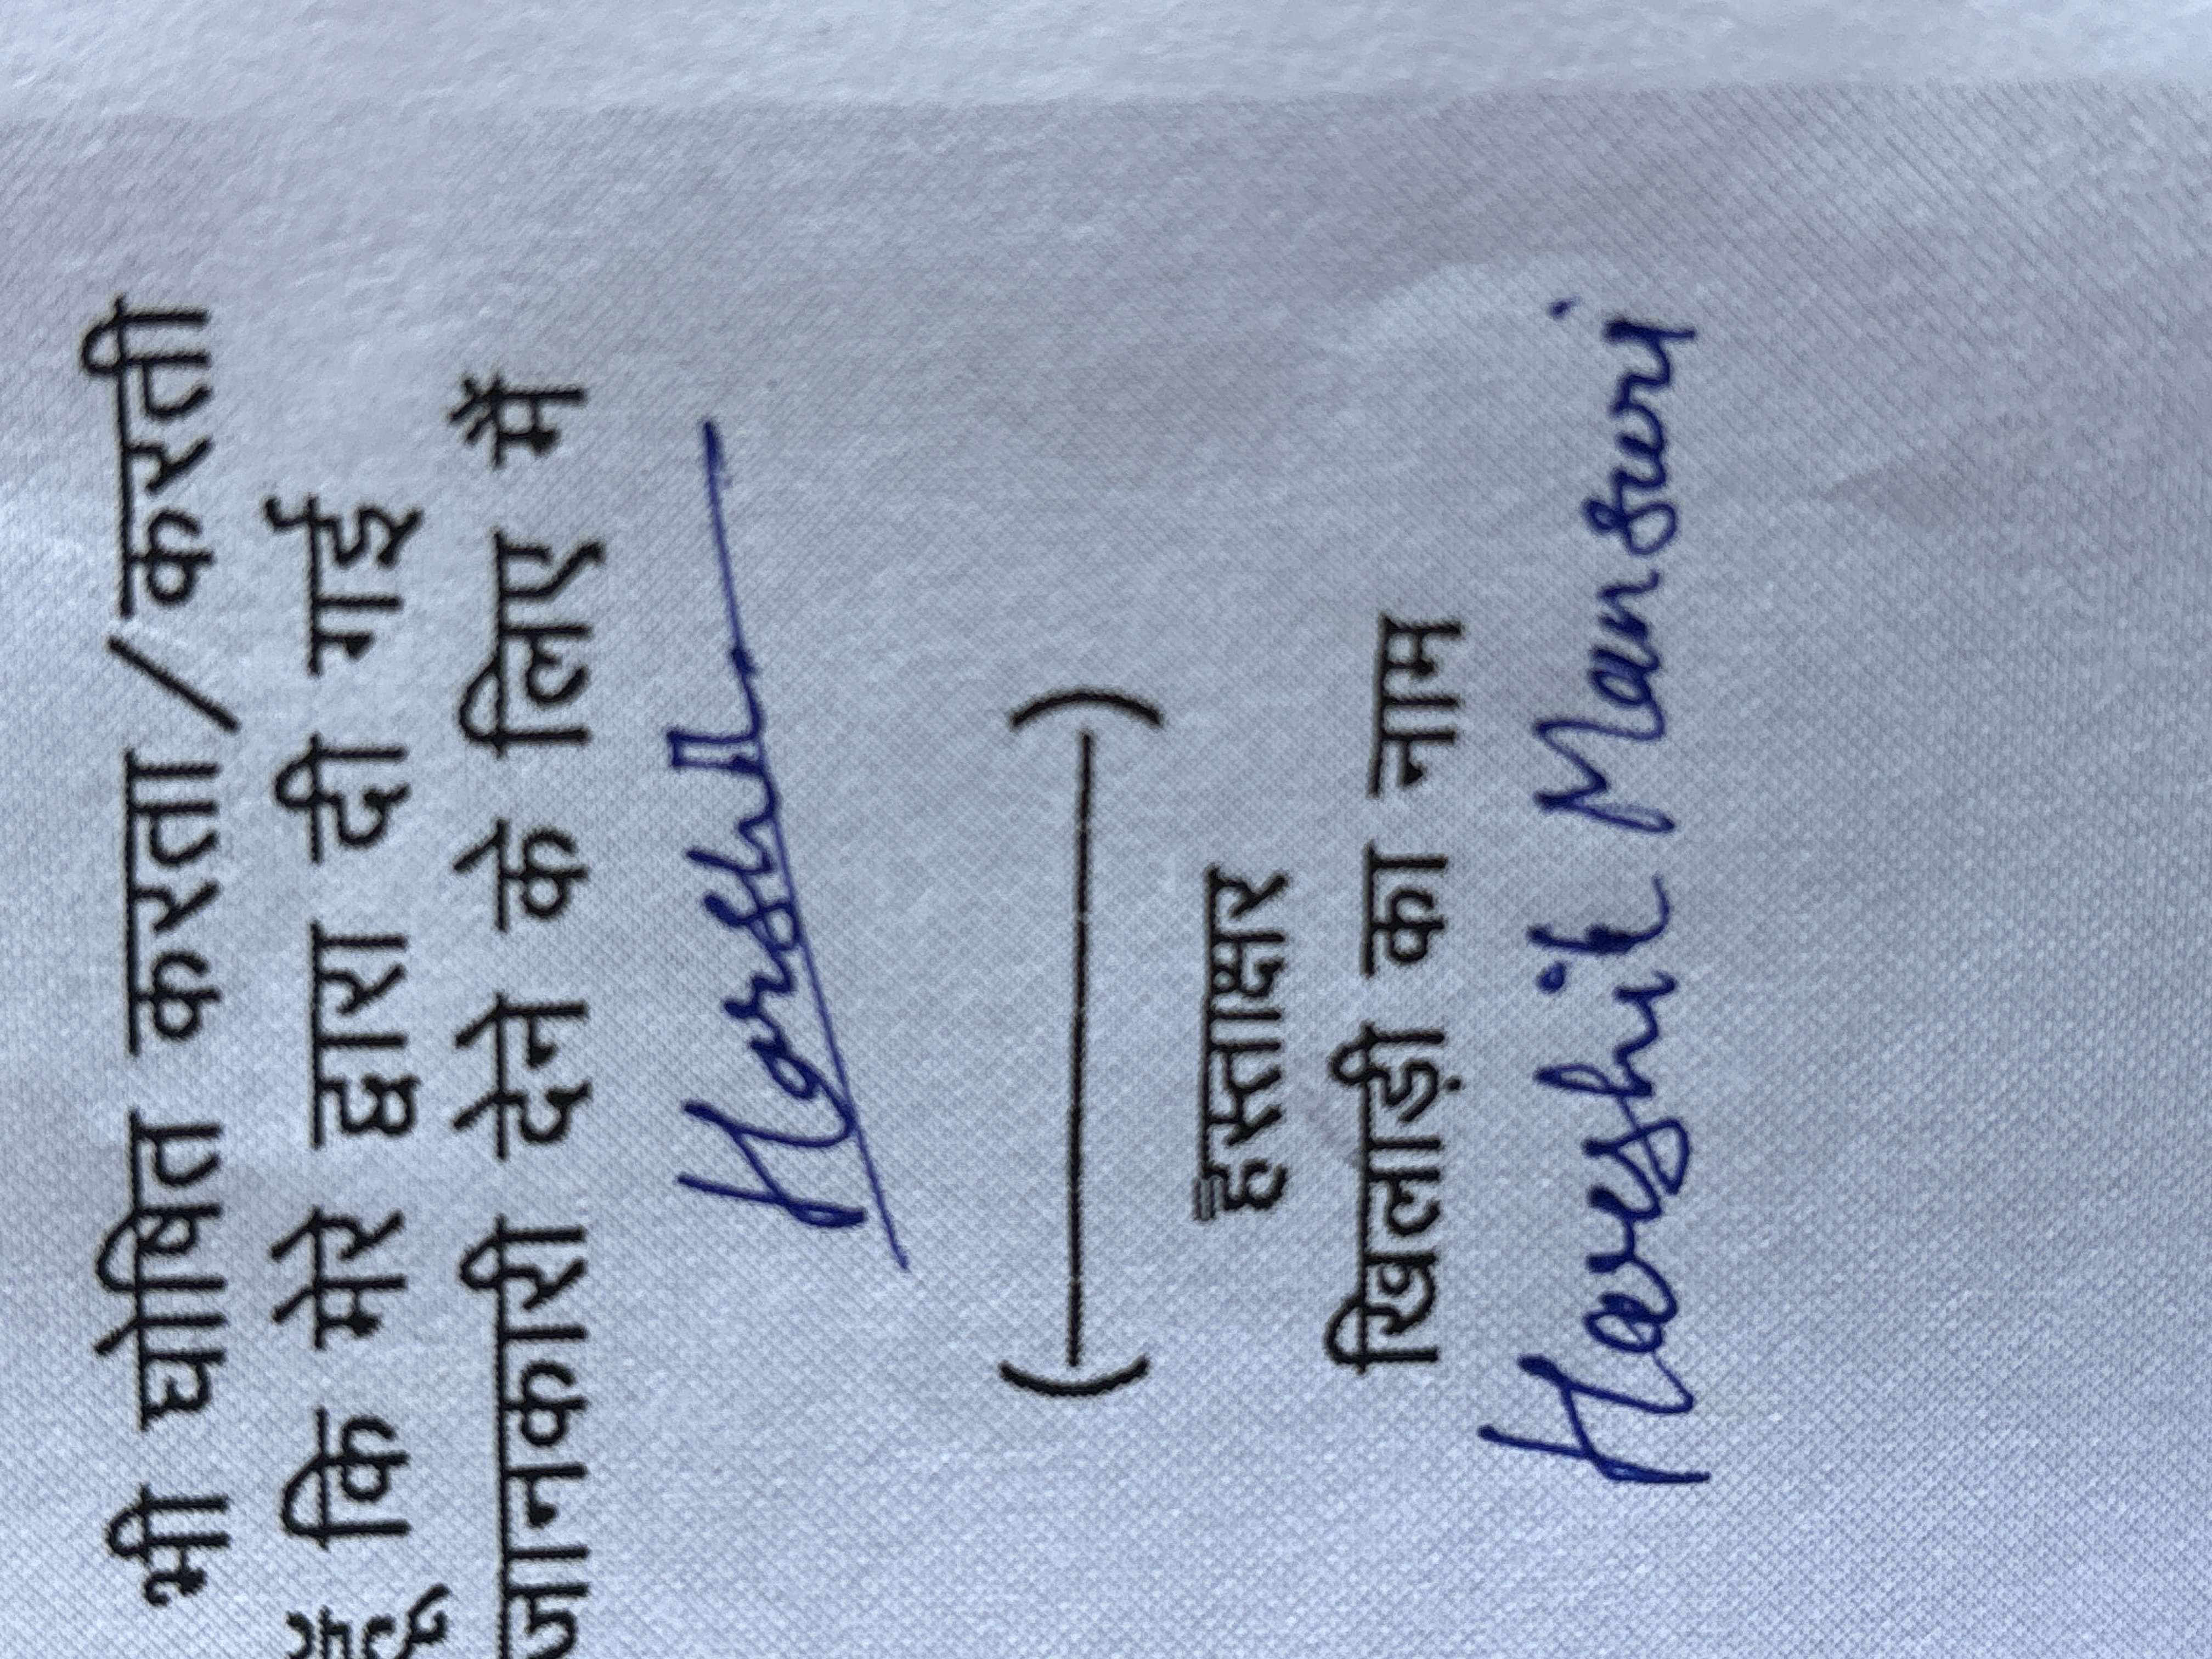 भी घोषित करता/करती
हूँ कि मेरे द्वारा दी गई
जानकारी देने के लिए में
Harshit
(————)
हस्ताक्षर
खिलाड़ी का नाम
Harshit Mansuri